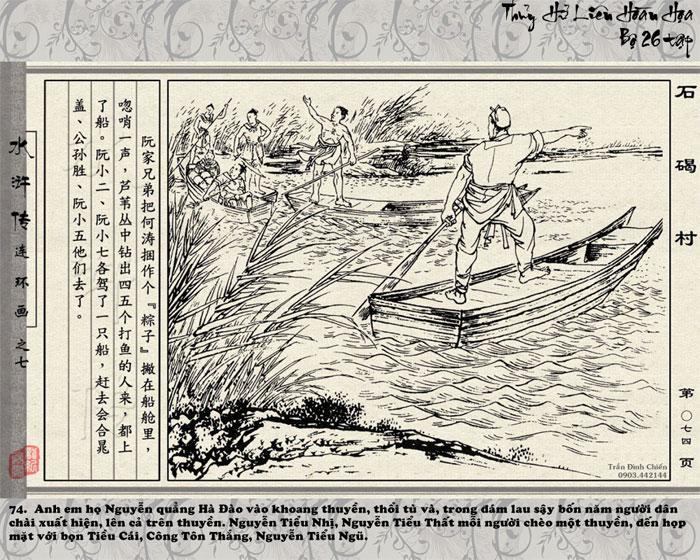 Thủy Hử Liên Hoàn Họa
Bộ 26 tập
石碣村
阮家兄弟把何涛捆作个『粽子』撇在船舱里，
唿哨一声，芦苇丛中钻出四五个打鱼的人来，都上
了船。阮小二、阮小七各驾了一只船，赶去会合晁
盖、公孙胜、阮小五他们去了。
水浒传连环画之七
第〇七四页
Trần Đình Chiến
0903.442144
74. Anh em họ Nguyễn quảng Hà Đào vào khoang thuyền, thổi tù và, trong đám lau sậy bốn năm người dân
chài xuất hiện, lên cả trên thuyền. Nguyễn Tiểu Nhị, Nguyễn Tiểu Thất mỗi người chèo một thuyền, đến họp
mặt với bọn Tiều Cái, Công Tôn Thắng, Nguyễn Tiểu Ngũ.